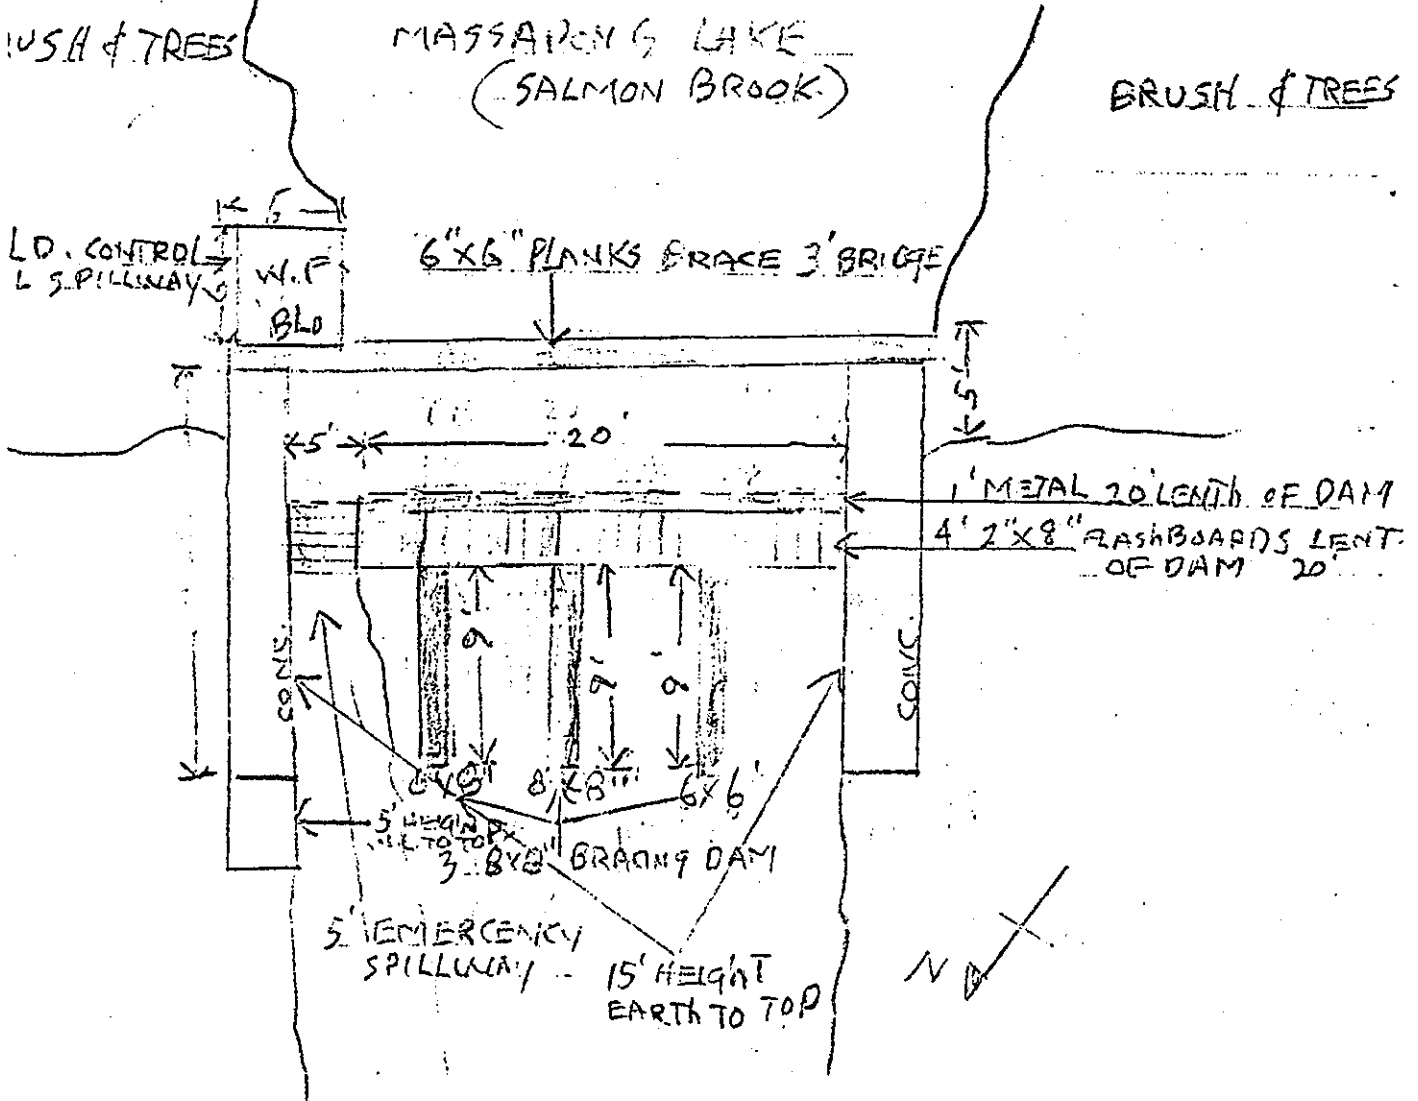 USH & TREES
MASSAPONG LAKE
(SALMON BROOK)
BRUSH & TREES
5'
LD. CONTROL
L SPILLWAY
W.F
BLD
6"X6" PLANKS BRACE 3' BRIGGE
5'
5'
20'
1' METAL 20' LENTh OF DAM
4' 2"X8" FLAShBOARDS LENT.
OF DAM 20'
CONS.
9'
9'
9'
CONC.
8"X8"
6X6'
5' HEIGH
TO TOP
3 8X8" BRACING DAM
5' EMERCENCY
SPILLWAY
15' HEIGhT
EARTh TO TOP
N